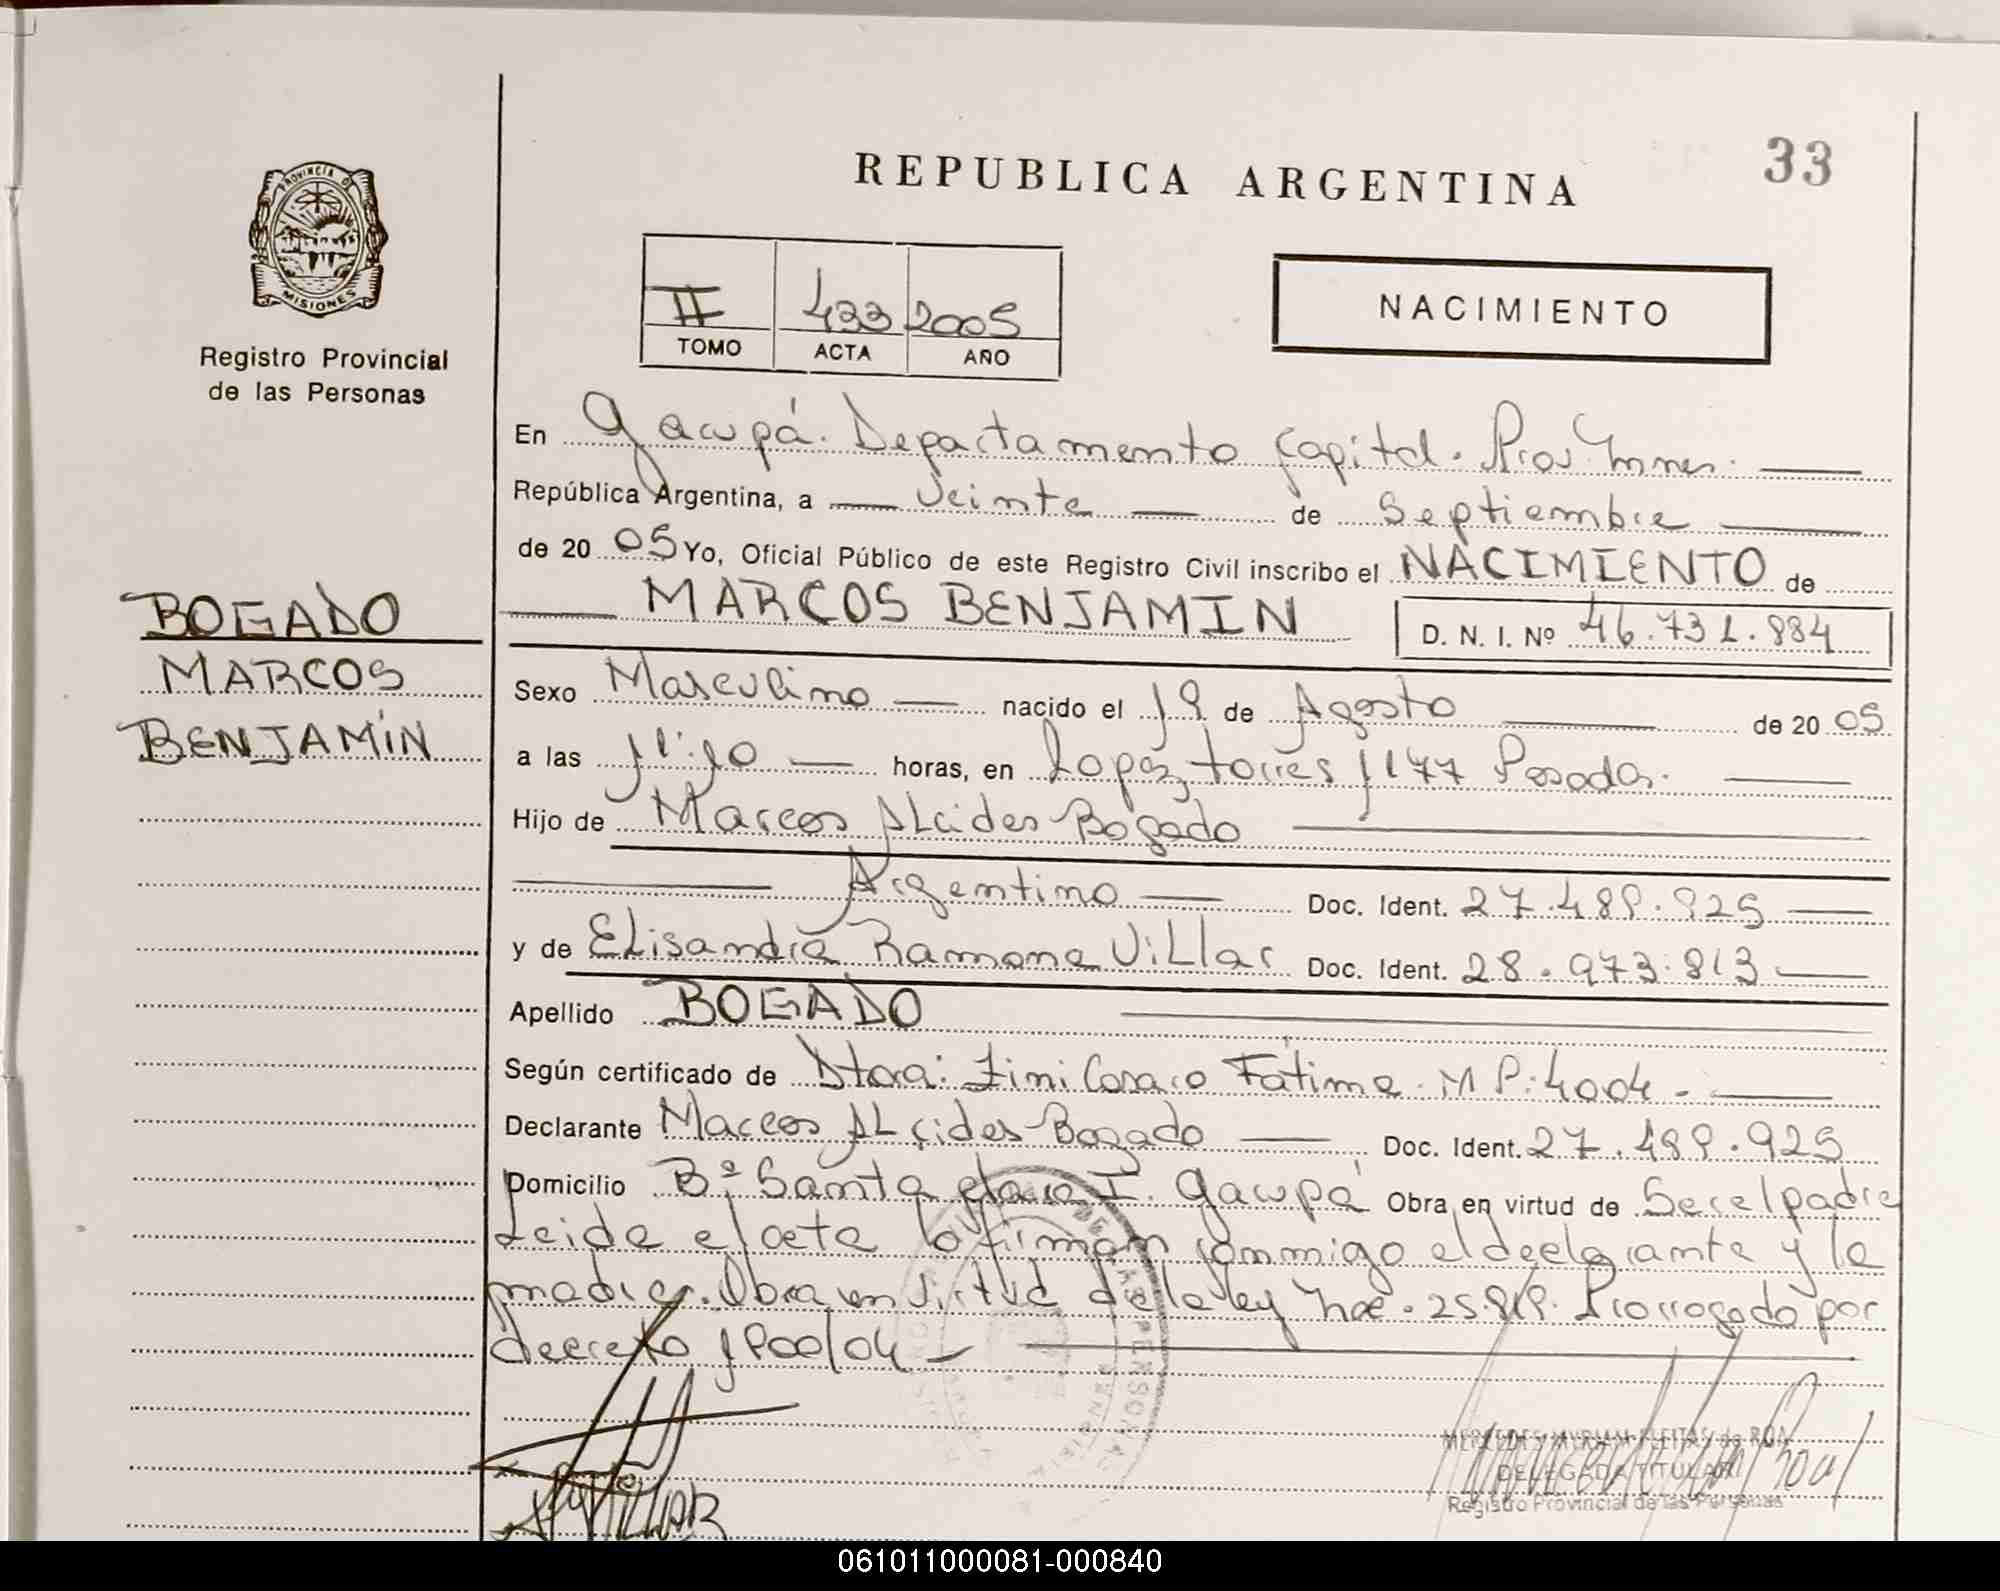 33
REPUBLICA ARGENTINA
PROVINCIA DE
MISIONES
Registro Provincial
de las Personas
II 433 2005
TOMO ACTA AÑO
NACIMIENTO
En Garupá. Departamento Capital. Prov. Mnes.
República Argentina, a veinte de Septiembre
de 20 05 Yo, Oficial Público de este Registro Civil inscribo el NACIMIENTO de
MARCOS BENJAMIN D. N. I. Nº 46.731.884
BOGADO
MARCOS
BENJAMÍN
Sexo Masculino nacido el 19 de Agosto de 20 05
a las 11:10 horas, en Lopez torres 1177 Posadas.
Hijo de Marcos Alcides Bogado
Argentino Doc. Ident. 27.489.925
y de Elisandra Ramona Villar Doc. Ident. 28.973.813
Apellido BOGADO
Según certificado de Dtora: Fátima M P: 4004 -
Declarante Marcos Alcides Bogado Doc. Ident. 27.489.925
Domicilio Bº Santa Clara I. Garupá Obra en virtud de Ser el padre
Leida el acta la firman conmigo el declarante y la
madre. Obra en virtud de la ley nro. 25.819. Prorrogado por
decreto 1900/04 -
VILLAR
MERCEDES MYRIAM FLEITAS de ROA
DELEGADA TITULAR
Registro Provincial de las Personas
061011000081-000840